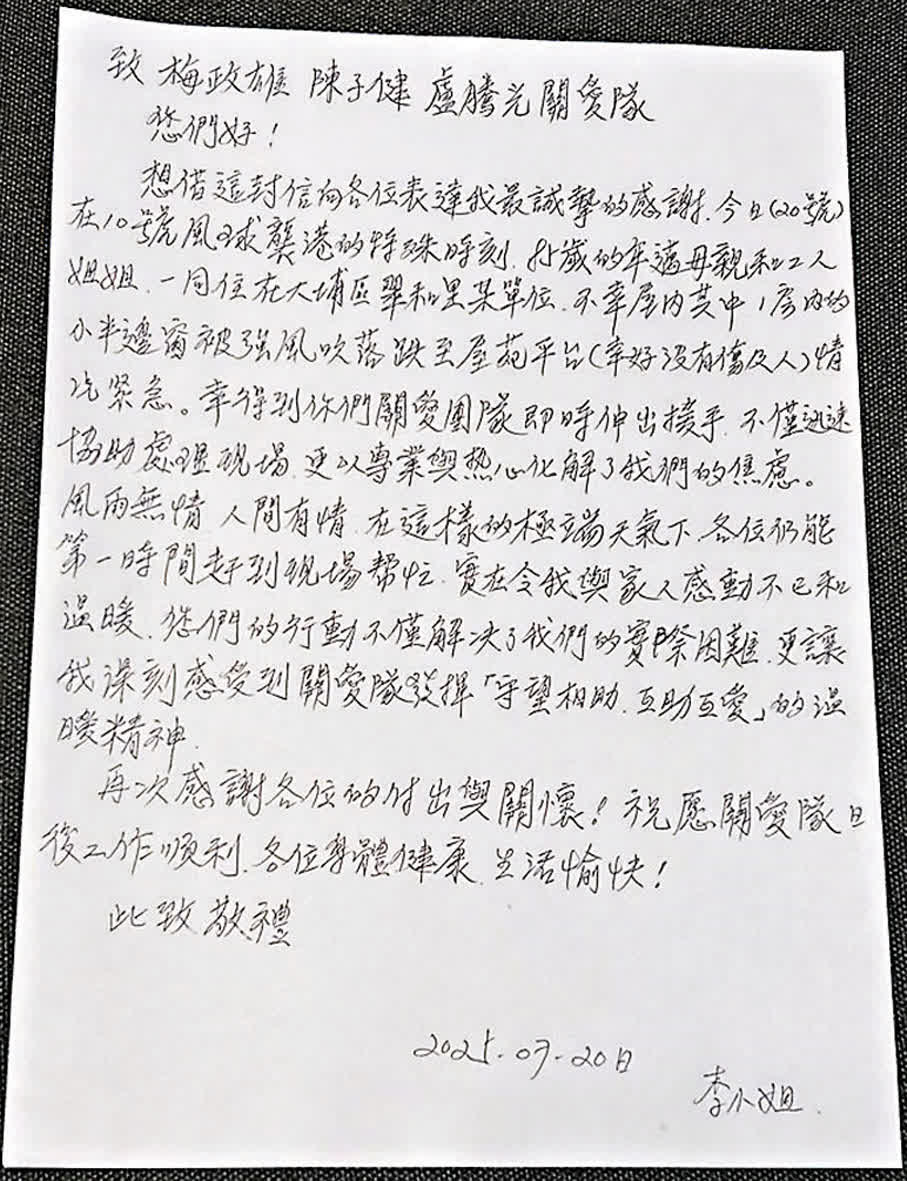 致 梅政雄 陳子健 盧騰光關愛隊
您們好!
想借這封信向各位表達我最誠摯的感謝.今日(20號)
在10號風球襲港的特殊時刻.85歲的年邁母親和工人
姐姐.一同住在大埔區翠和里某單位.不幸屋内其中1房内的
小半邊窗被强風吹落跌至屋苑平台(幸好沒有傷及人)情
况緊急。幸得到你們關愛團隊即時伸出援手.不僅迅速
協助處理現場.更以專業與热心化解了我們的焦慮。
風雨無情 人間有情.在這樣的極端天氣下.各位仍能
第一時間赶到現場幫忙.實在令我與家人感動不已和
温暖.您們的行動不僅解决了我們的實際困難.更讓
我深刻感受到關愛隊發揮「守望相助.互助互愛」的温
暖精神.
再次感謝各位的付出與關懷!祝愿關愛隊日
後工作順利.各位身體健康.生活愉快!
此致敬禮
2025.07-20日
李小姐.